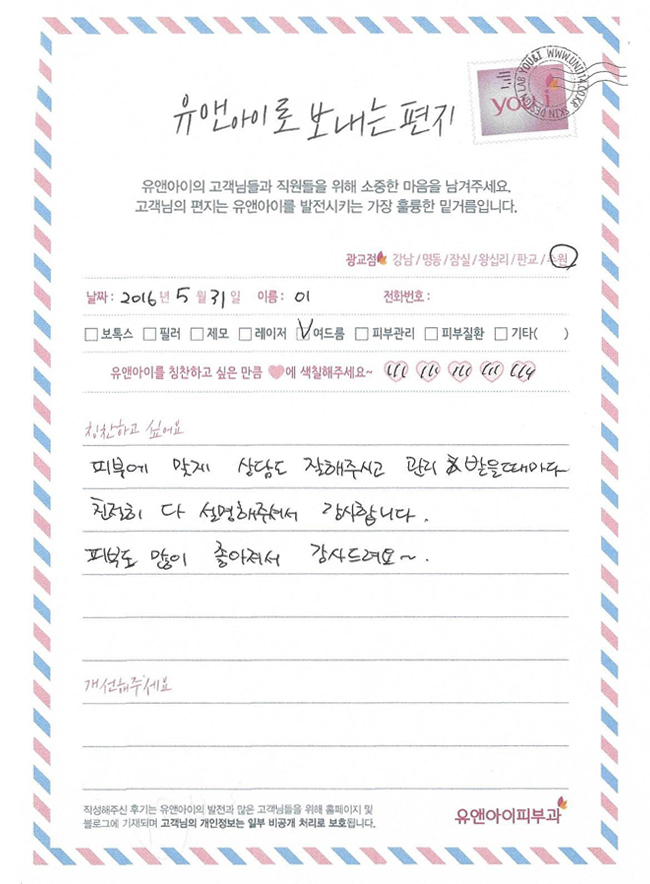 YOU&I WWW.UNI114.CO.KR SKIN DESIGN LAB
you i
유앤아이로 보내는 편지
유앤아이의 고객님들과 직원들을 위해 소중한 마음을 남겨주세요.
고객님의 편지는 유앤아이를 발전시키는 가장 훌륭한 밑거름입니다.
광교점 강남 / 명동 / 잠실 / 왕십리 / 판교 / 수원
날짜 : 2016년 5월 31일 이름 : 이 전화번호 :
보톡스 필러 제모 레이저 여드름 피부관리 피부질환 기타( )
유앤아이를 칭찬하고 싶은 만큼 에 색칠해주세요~
칭찬하고 싶어요
피부에 맞게 상담도 잘해주시고 관리 받을때마다
친절히 다 설명해주셔서 감사합니다.
피부도 많이 좋아져서 감사드려요~.
개선해주세요
작성해주신 후기는 유앤아이의 발전과 많은 고객님들을 위해 홈페이지 및
블로그에 기재되며 고객님의 개인정보는 일부 비공개 처리로 보호됩니다.
유앤아이피부과